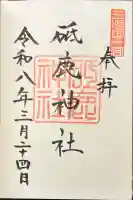 奉拝
砥鹿神社
令和八年三月二十四日